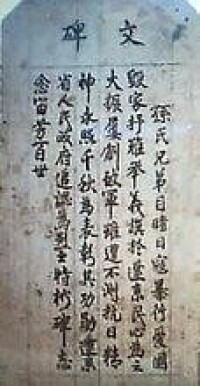 碑文
孫氏兄弟目睹日寇暴行愛國
毀家抒難舉義旗於遼東民心為之
大振屡創敵軍雖遭不測抗日精
神永照千秋為表彰其功勛遼東
省人民政府追認為烈士特树碑志
念留芳百世